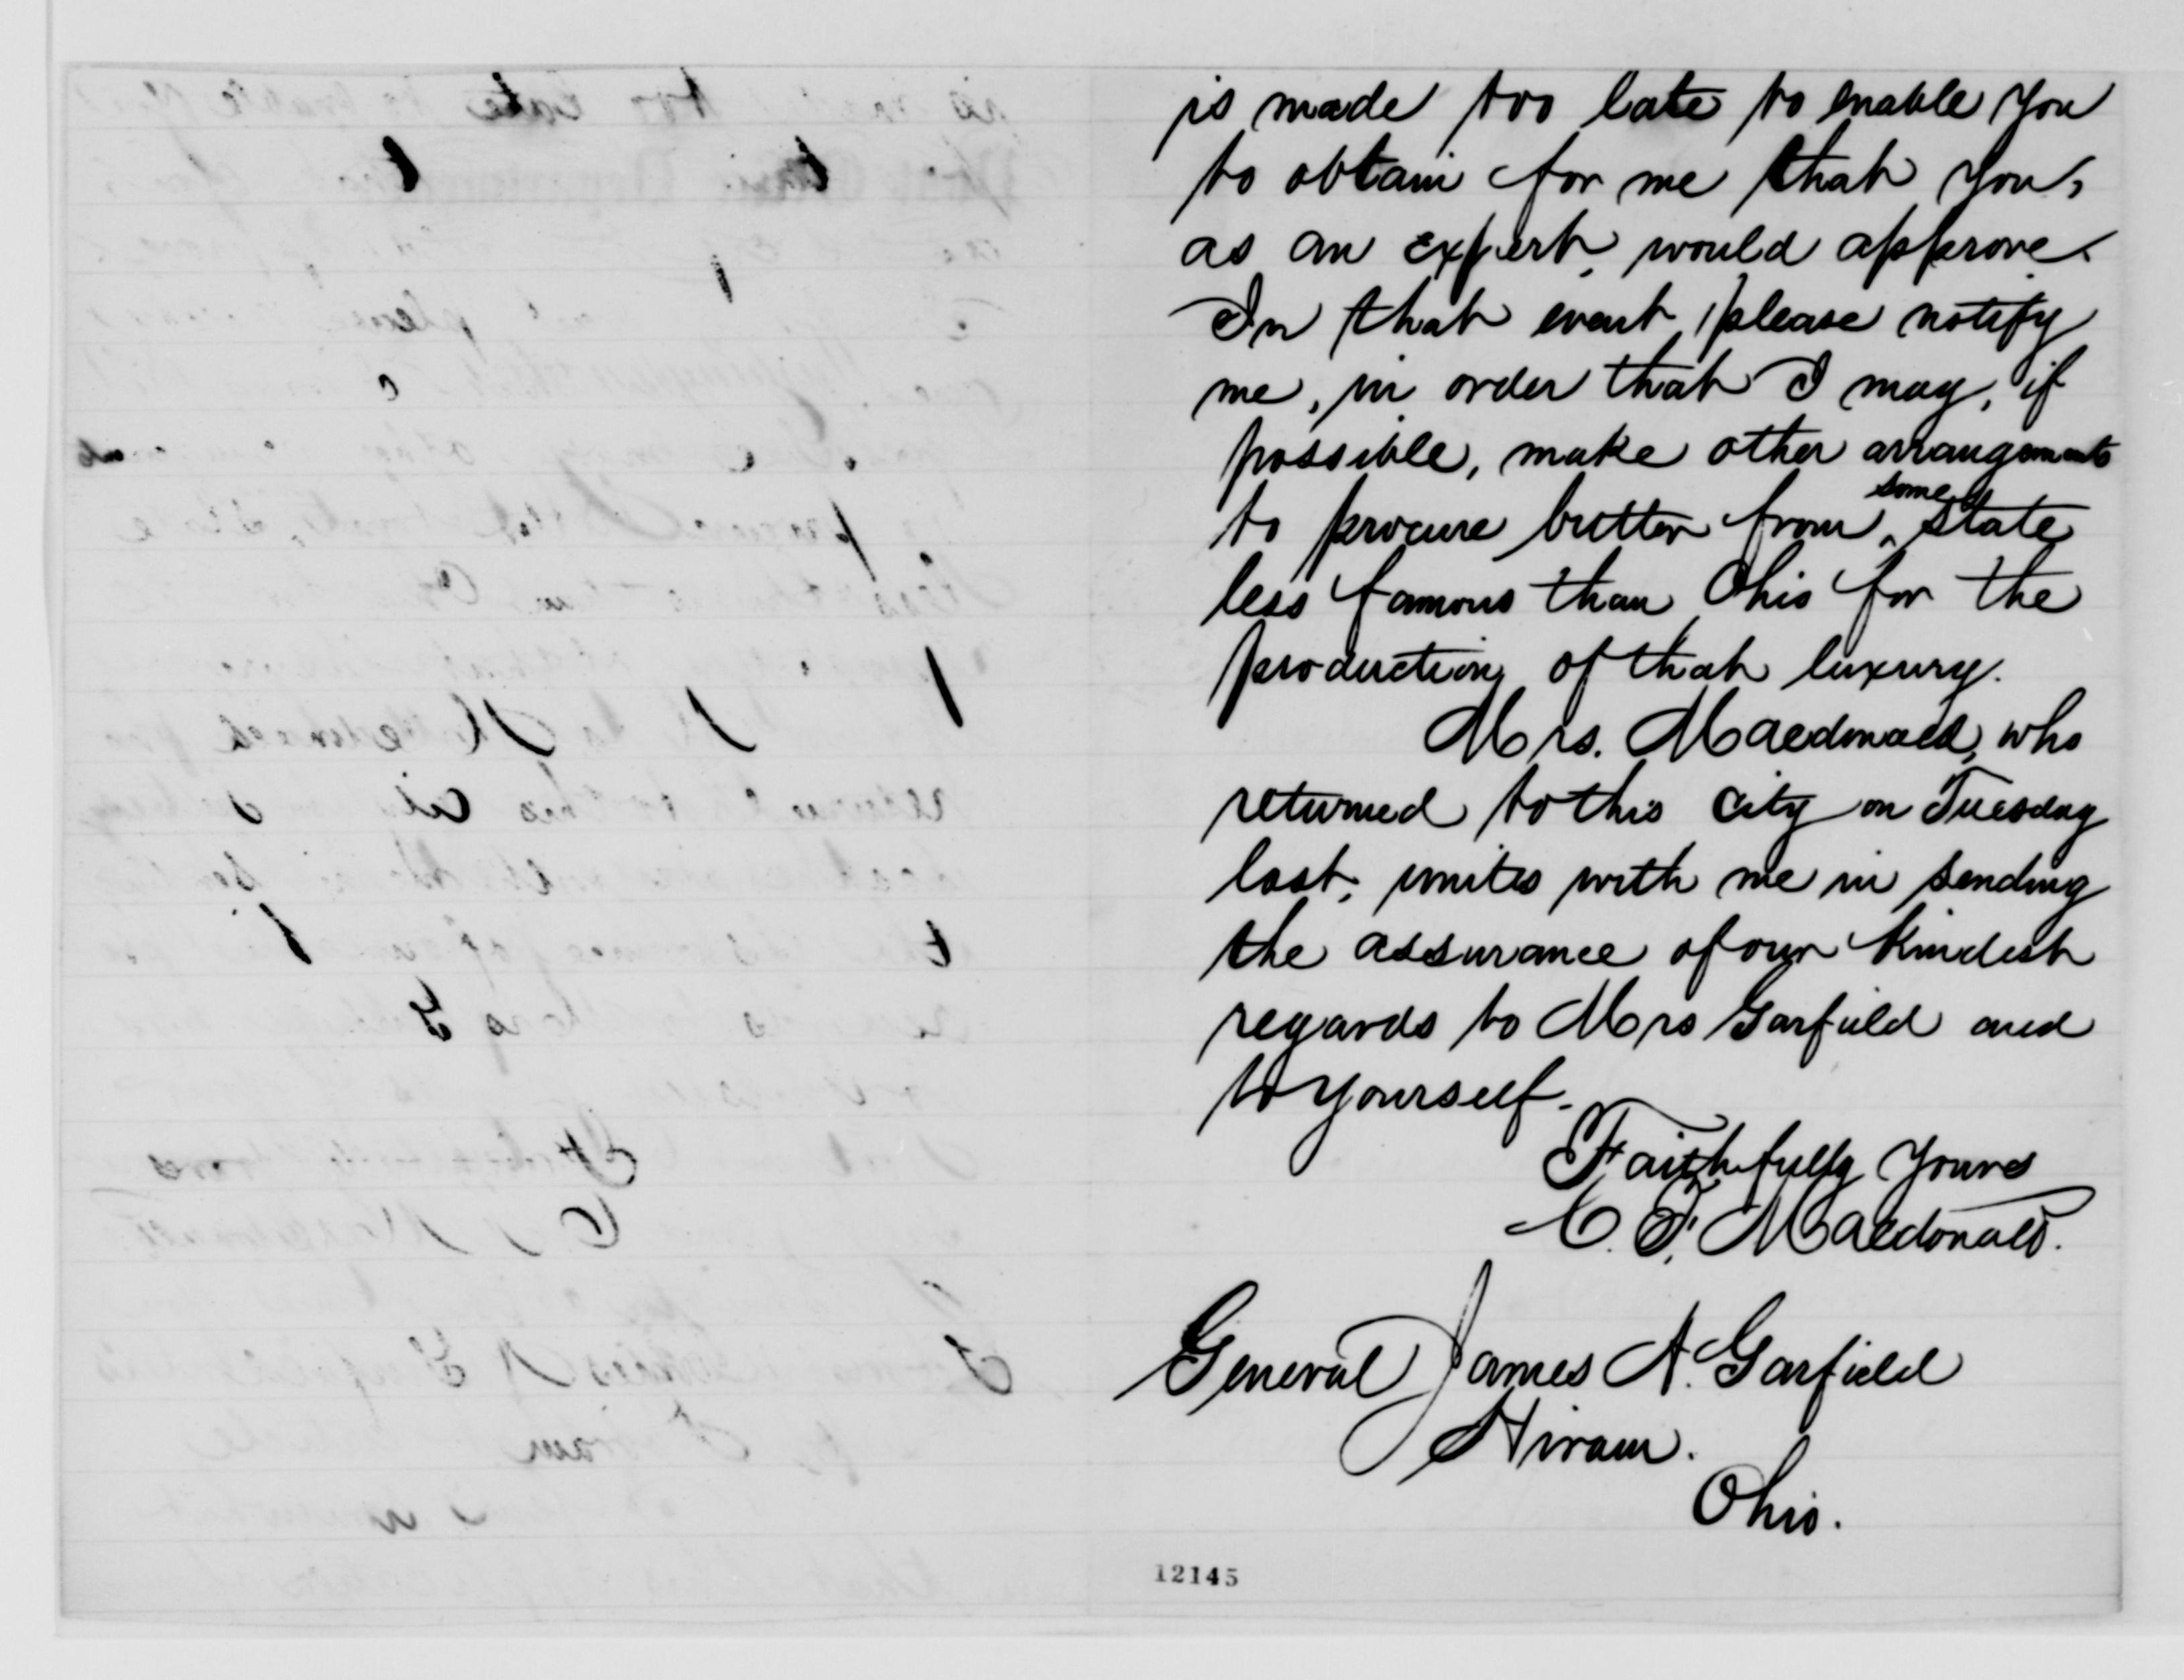 is made too late to enable you
to obtain for me that you,
as an expert, would approve.
In that event, please notify
me, in order that I may, if
possible, make other arrangements
to procure butter from some State
less famous than Ohio for the
production of that luxury.
Mrs. Macdonald, who
returned to this city on Tuesday
last, unites with me in sending
the assurance of our kindest
regards to Mrs Garfield and
to yourself.
Faithfully Yours
C. F. Macdonald.
General James A. Garfield
Hiram.
Ohio.
12145